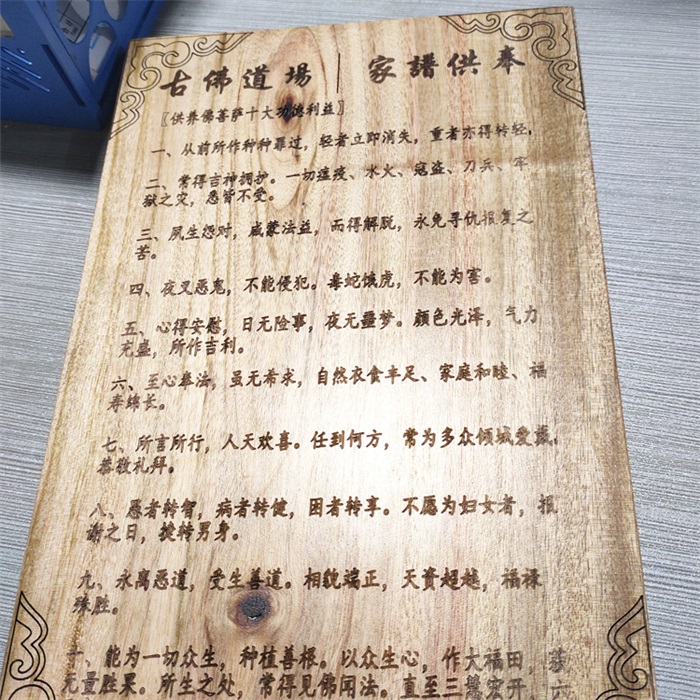 古佛道場 家譜供奉
〖供养佛菩萨十大功德利益〗
一、从前所作种种罪过，轻者立即消失，重者亦得转轻。
二、常得吉神拥护。一切瘟疫、水火、寇盗、刀兵、牢
狱之灾，悉皆不受。
三、夙生怨对，咸蒙法益，而得解脱，永免寻仇报复之
苦。
四、夜叉恶鬼，不能侵犯。毒蛇饿虎，不能为害。
五、心得安慰，日无险事，夜无噩梦。颜色光泽，气力
充盛，所作吉利。
六、至心奉法，虽无希求，自然衣食丰足、家庭和睦、福
寿绵长。
七、所言所行，人天欢喜。任到何方，常为多众倾城爱戴，
恭敬礼拜。
八、愚者转智，病者转健，困者转享。不愿为妇女者，报
谢之日，捷转男身。
九、永离恶道，受生善道。相貌端正，天資超越，福禄
殊胜。
十、能为一切众生，种植善根。以众生心，作大福田，
无量胜果。所生之处，常得见佛闻法。直至三慧宏开，六